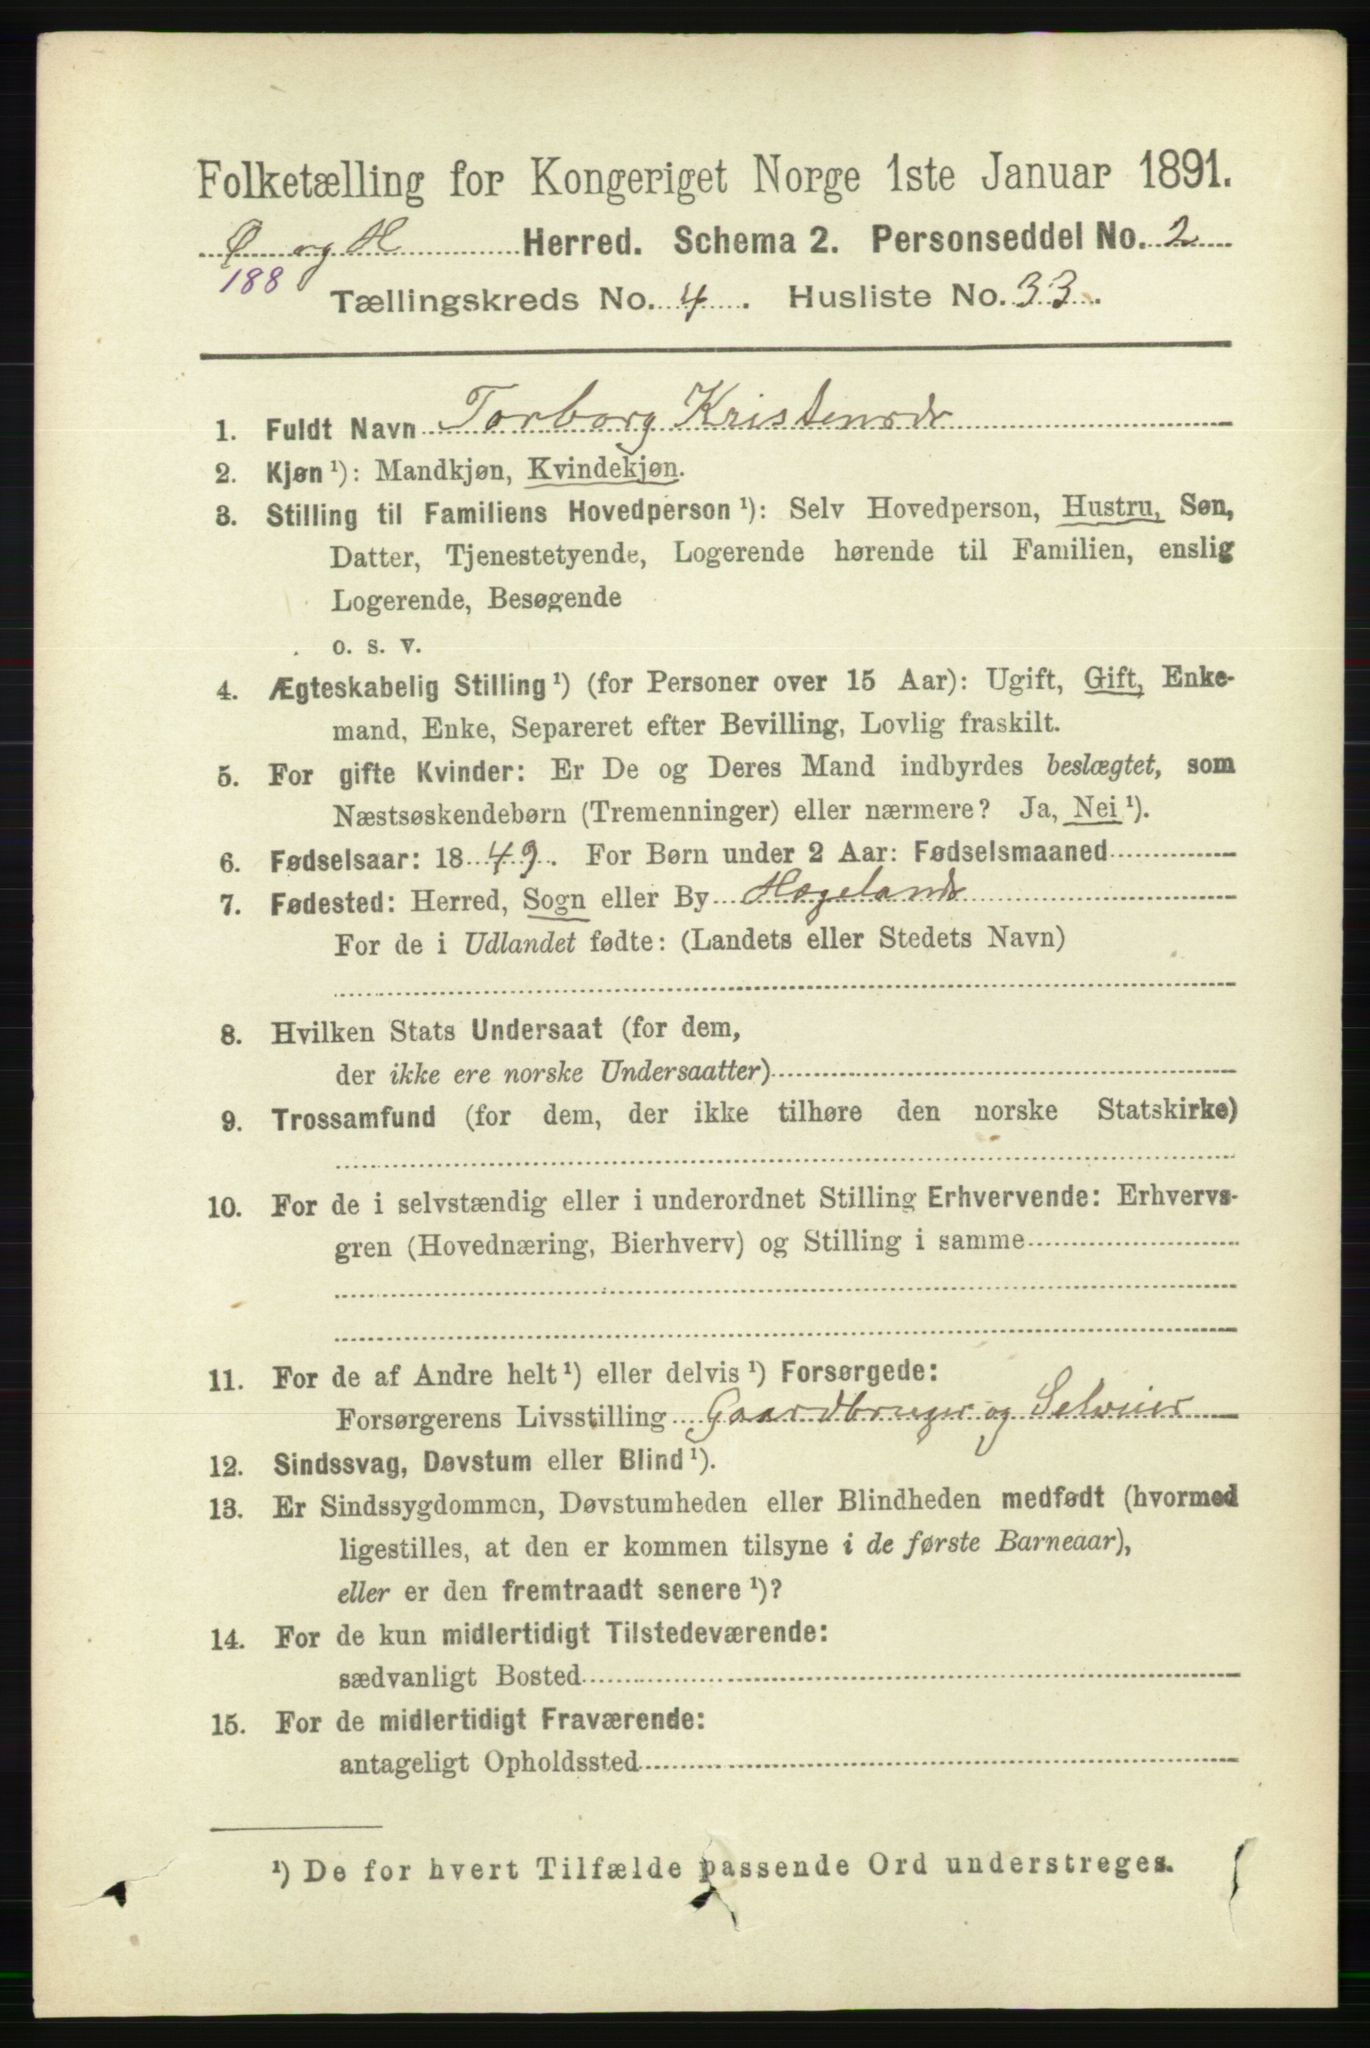 Folketælling for Kongeriget Norge 1ste Januar 1891.
Ø og H Herred. Schema 2. Personseddel No. 2
188
Tællingskreds No. 4. Husliste No. 33.
1. Fuldt Navn Torborg Kristensdr
2. Kjøn ¹): Mandkjøn, Kvindekjøn.
3. Stilling til Familiens Hovedperson ¹): Selv Hovedperson, Hustru, Søn,
Datter, Tjenestetyende, Logerende hørende til Familien, enslig
Logerende, Besøgende
o. s. v.
4. Ægteskabelig Stilling ¹) (for Personer over 15 Aar): Ugift, Gift, Enke-
mand, Enke, Separeret efter Bevilling, Lovlig fraskilt.
5. For gifte Kvinder: Er De og Deres Mand indbyrdes beslægtet, som
Næstsøskendebørn (Tremenninger) eller nærmere? Ja, Nei ¹).
6. Fødselsaar: 1849. For Børn under 2 Aar: Fødselsmaaned
7. Fødested: Herred, Sogn eller By Hægelands
For de i Udlandet fødte: (Landets eller Stedets Navn)
8. Hvilken Stats Undersaat (for dem,
der ikke ere norske Undersaatter)
9. Trossamfund (for dem, der ikke tilhøre den norske Statskirke)
10. For de i selvstændig eller i underordnet Stilling Erhvervende: Erhvervs-
gren (Hovednæring, Bierhverv) og Stilling i samme
11. For de af Andre helt ¹) eller delvis ¹) Forsørgede:
Forsørgerens Livsstilling Gaardbruger og Selveier
12. Sindssvag, Døvstum eller Blind ¹).
13. Er Sindssygdommen, Døvstumheden eller Blindheden medfødt (hvormed
ligestilles, at den er kommen tilsyne i de første Barneaar),
eller er den fremtraadt senere ¹)?
14. For de kun midlertidigt Tilstedeværende:
sædvanligt Bosted
15. For de midlertidigt Fraværende:
antageligt Opholdssted
¹) De for hvert Tilfælde passende Ord understreges.